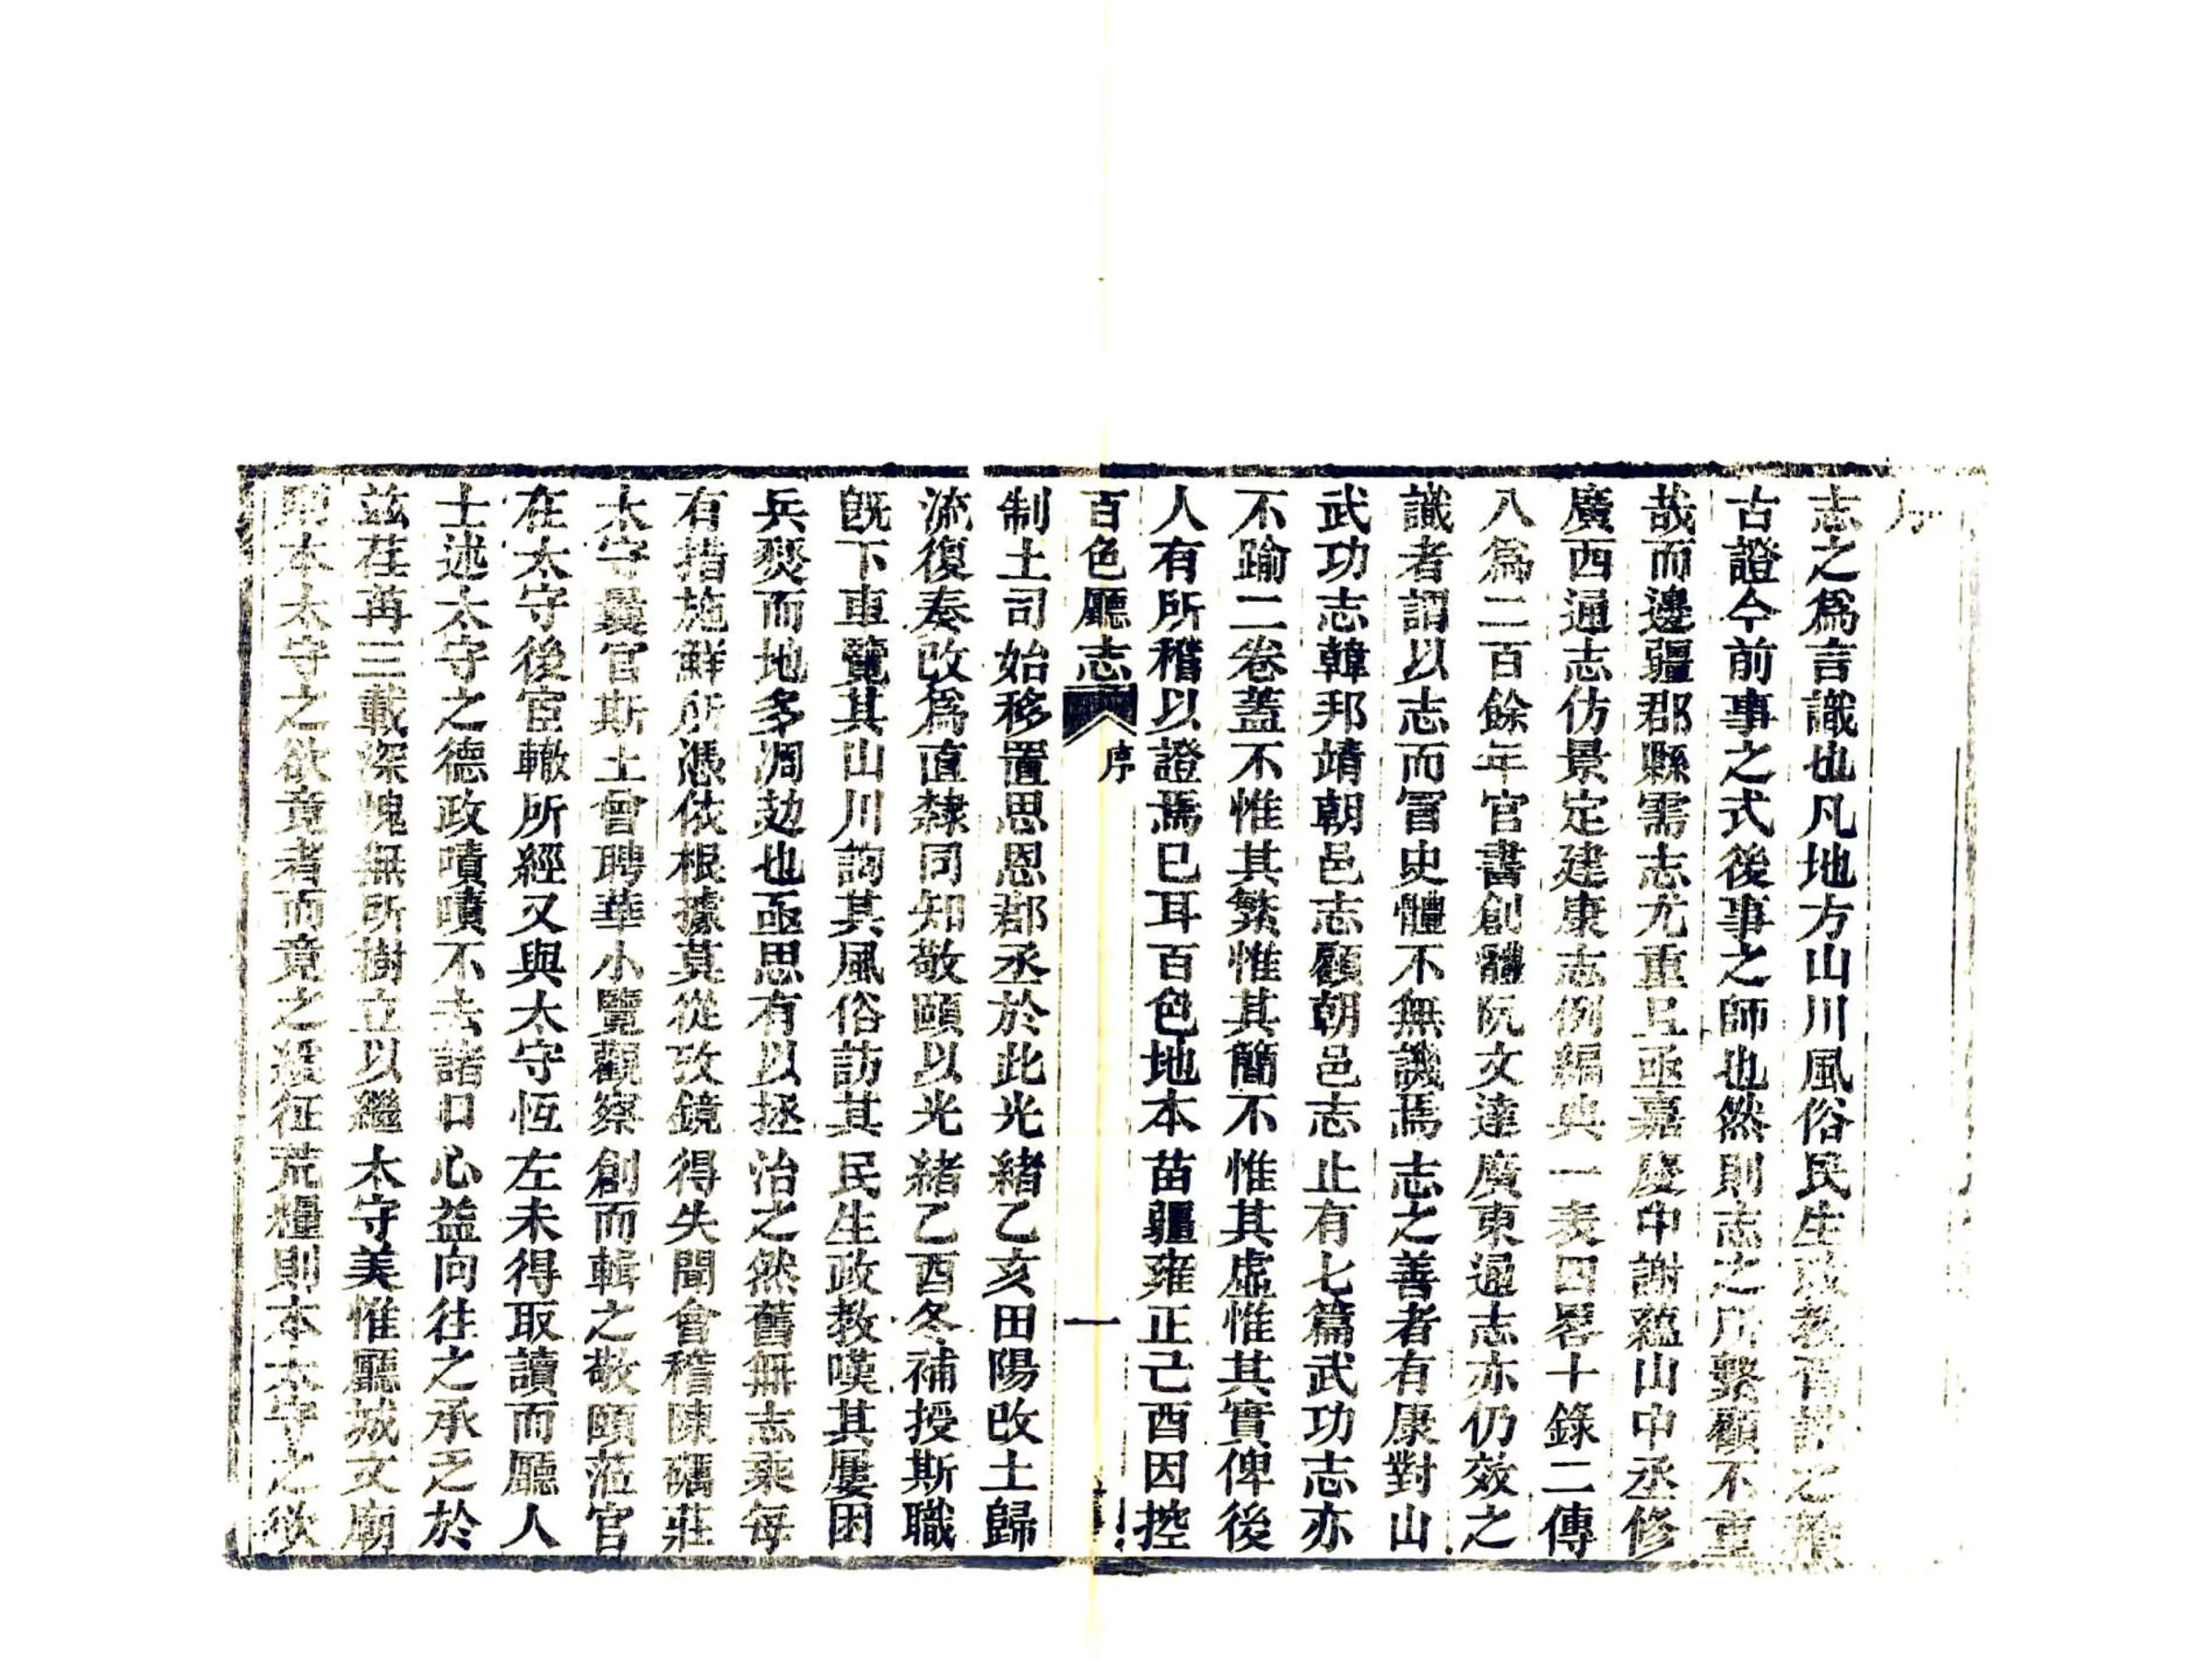 序
志之爲言識也凡地方山川風俗民生政教胥於之
古證今前事之式後事之師也然則志之所繫顧不重
哉而邊疆郡縣需志尤重且亟嘉慶中謝蘊山中丞修
廣西通志仿景定建康志例編典一表四畧十錄二傳
八爲二百餘年官書創體阮文達廣東通志亦仍效之
識者謂以志而冒史體不無譏焉志之善者有康對山
武功志韓邦靖朝邑志顧朝邑志止有七篇武功志亦
不踰二卷蓋不惟其繁惟其簡不惟其虛惟其實俾後
人有所稽以證焉已耳百色地本苗疆雍正己酉因控
百色廳志 序 一
制土司始移置思恩郡丞於此光緒乙亥田陽改土歸
流復奏改爲直隸同知敬頤以光緒乙酉冬補授斯職
旣下車覽其山川詢其風俗訪其民生政教嘆其屢困
兵燹而地多凋攰也亟思有以拯治之然舊無志乘每
有措施鮮所憑依根據莫從攷鏡得失聞會稽陳礪莊
太守曩官斯土曾聘華小覽觀察創而輯之敬頤蒞官
在太守後宦轍所經又與太守恆左未得取讀而廳人
士述太守之德政嘖嘖不去諸口心益向往之承乏於
茲荏苒三載深愧無所樹立以繼太守美惟廳城文廟
則本太守之欲竟者而竟之經征荒糧則本太守之欲